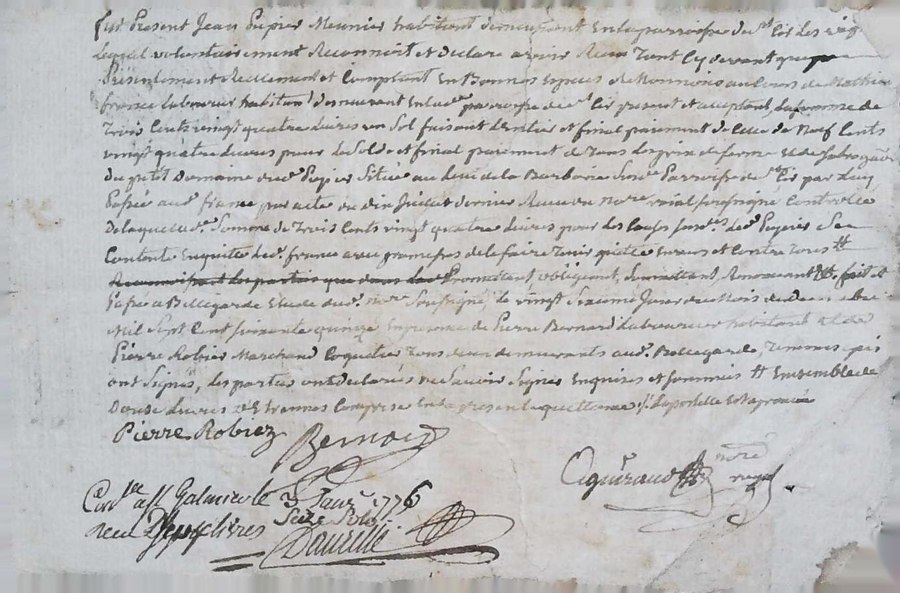 fut Present Jean Pupier Meunier habitant demeurant En la parroisse de St Cir Les vig
Lequel volontairement Reconnoit et Declare avoir Receu Tant Cy devant que
Presentement Reellement et Comptant En Bonnes especes de Monnoie au Cours de Mathieu
france laboureur habitant demeurant En lad. parroisse de St Cir present et acceptant, La somme de
Trois Cents vingt quatre Livres un Sol faisant dernier et final paiement de Celle de Neuf Cents
vingt quatre Livres pour Le Solde et final paiement de Tous Les prix de ferme
Du petit Domaine dud. Pupier Situé au Lieu de la Barbarie Susd. Parroisse de St Cir par Luy
Passée aud. france par acte du dix Juillet dernier Receu du Nore roial soussigné Controllé
De laquelle d. Somme de Trois Cents vingt quatre Livres pour Les Causes Susd. led. Pupier S'en
Contente En quitte led. france avec promesse de le faire Tenir quitte Envers et Contre Tous #
Promettant, obligeant, soumettant, Renonceant fait et
Passé a Bellegarde Etude dud. Nore Soussigné, Le vingt Sixieme Jour du Mois de decembre
Mil Sept Cent soixante quinze En presence de Pierre Bernard Laboureur habitant et de
Pierre Robier Marchand Coquetier Tous deux demeurants aud. Bellegarde, Temoins qui
ont Signés, Les parties ont Declarés ne Savoir Signer Enquises et Sommées # Ensemble de
Douze Livres d'Etrennes Comprise En la presente quittance
Pierre Robiez Bernard
Aguiraud noré royal
Conlée a St Galmier le 3 Janr. 1776
Receu Seize Sols
Daurelle